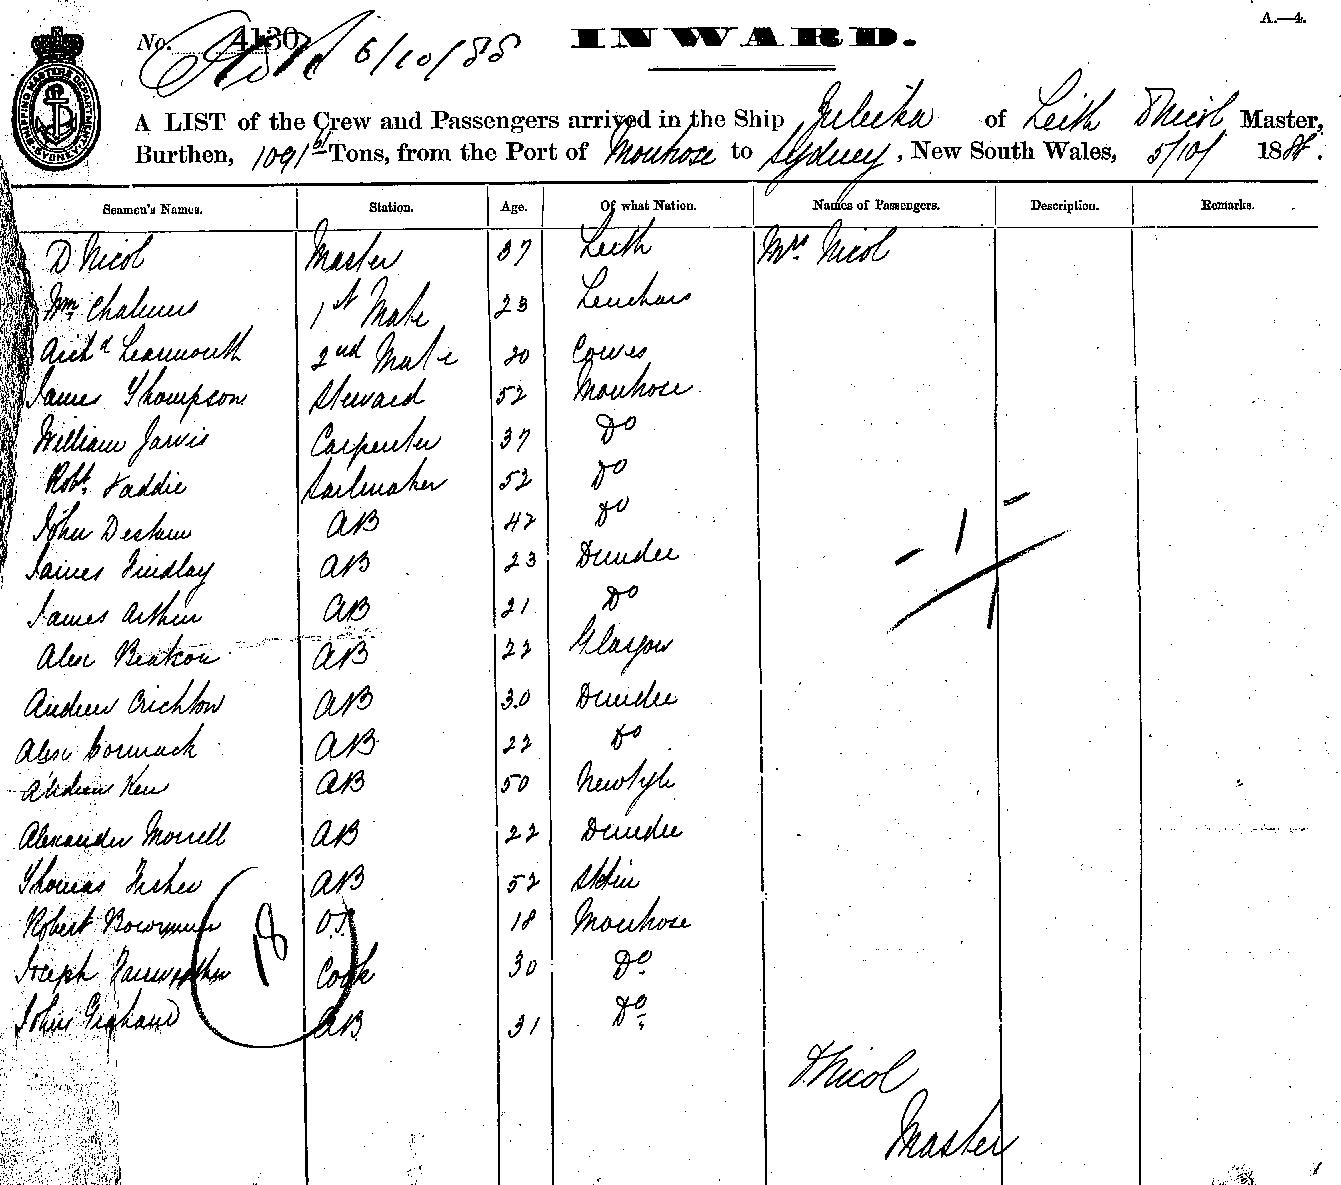 A.—4.
No. 4130 6/10/88
INWARD.
SHIPPING MASTER'S DEPARTMENT SYDNEY
A LIST of the Crew and Passengers arrived in the Ship Juleika of Leith D Nicol Master,
Burthen, 1091 Tons, from the Port of Montrose to Sydney, New South Wales, 5/10/ 188
Seamen's Names. Station. Age. Of what Nation. Names of Passengers. Description. Remarks.
D Nicol Master 37 Leith Mrs. Nicol
Wm Chalmers 1st Mate 23 Leuchars
Archd Learmonth 2nd Mate 20 Cowes
James Thompson Steward 52 Montrose
William Jarvis Carpenter 37 Do
Robt. Faddie Sailmaker 52 Do
John AB 42 Do
James Findlay AB 23 Dundee
James Arthur AB 21 Do
Alex Beatson AB 22 Glasgow
Andrew Crichton AB 30 Dundee
Alex Cormack AB 22 Do
Andrew Kerr AB 50 Newtyle
Alexander Morrell AB 22 Dundee
Thomas Fisher AB 52
Robert Bowman O.S. 18 Montrose
Joseph Fairweather Cook 30 Do
John Graham AB 31 Do
18
D Nicol
Master